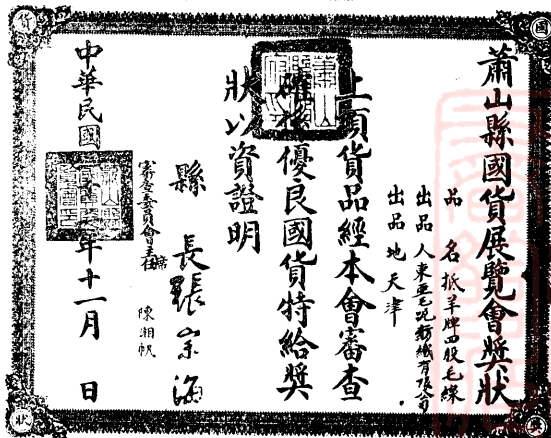 蕭山縣國貨展覽會獎狀
品名 抵羊牌四股毛線
出品人 東亞毛呢紡織有限公司
出品地 天津
上項貨品經本會審查
確係優良國貨特給獎
狀以資證明
縣長 張宗海
審查委員會主任 陳湘帆
中華民國 年十一月 日
國
貨
獎
狀